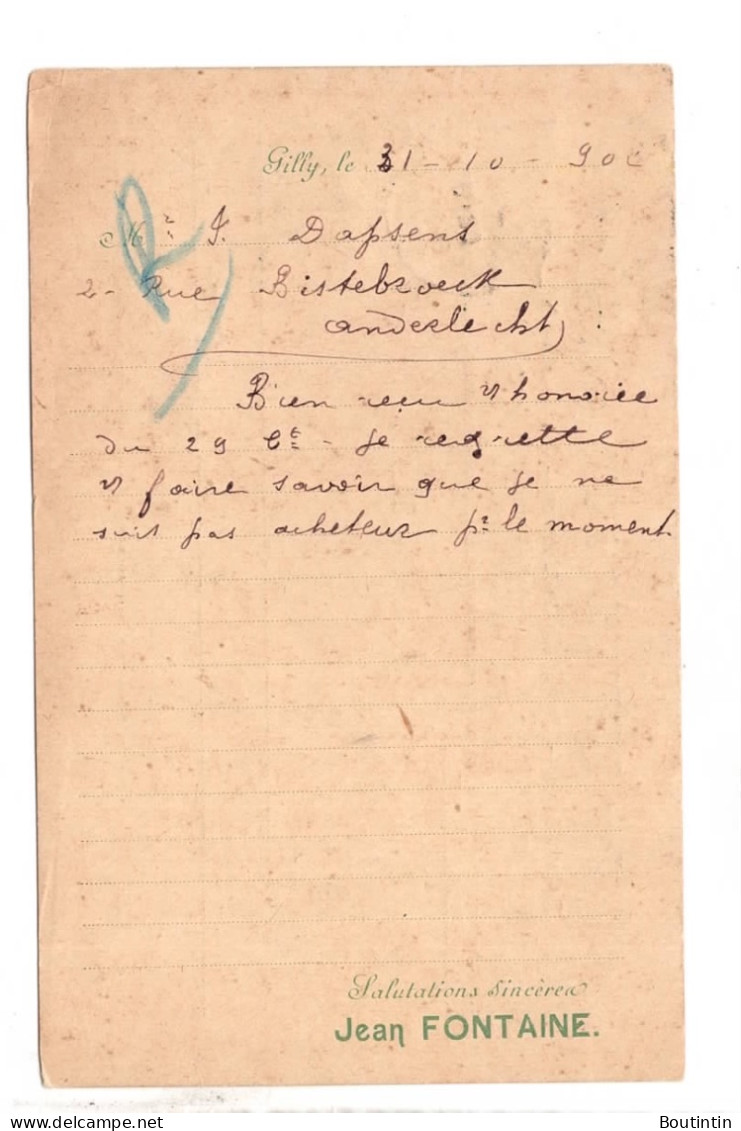 Gilly, le 31 - 10 - 90
Mr J. Dapsens
2 - Rue Bistebroeck
anderlecht
Bien reçu v/ honorée
du 29 ct - je regrette
v/ faire savoir que je ne
suis pas acheteur pr le moment.
Salutations sincères
Jean FONTAINE.
delcampe.net
Boutintin